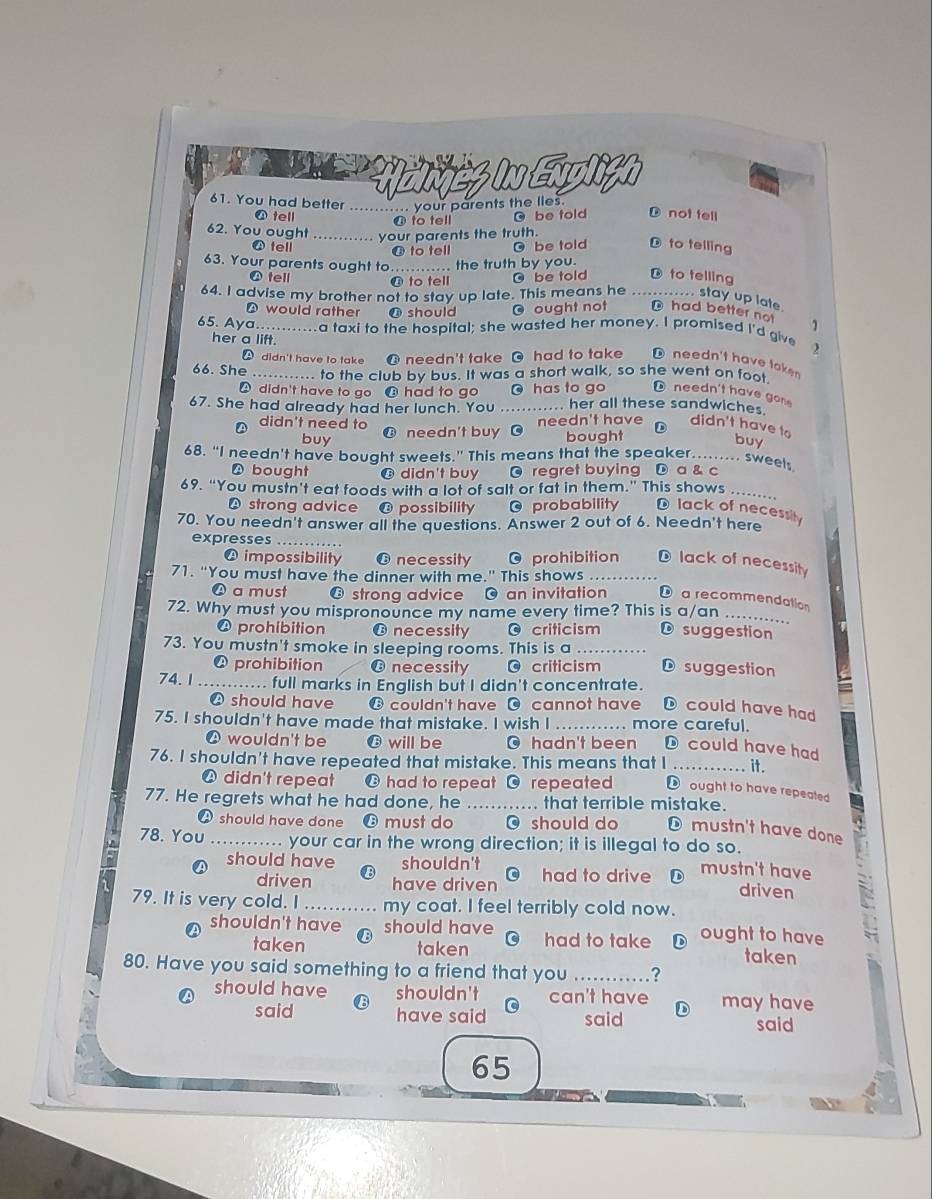 Holmes In English
61. You had better ............ your parents the lies.
A tell B to tell C be told D not tell
62. You ought ............ your parents the truth.
A tell B to tell C be told D to telling
63. Your parents ought to............ the truth by you.
A tell B to tell C be told D to telling
64. I advise my brother not to stay up late. This means he ............ stay up late.
A would rather B should C ought not D had better not
65. Aya............a taxi to the hospital; she wasted her money. I promised I'd give
her a lift.
A didn't have to take B needn't take C had to take D needn't have taken
66. She ............ to the club by bus. It was a short walk, so she went on foot.
A didn't have to go B had to go C has to go D needn't have gone
67. She had already had her lunch. You ............ her all these sandwiches.
A didn't need to buy B needn't buy C needn't have bought D didn't have to buy
68. "I needn't have bought sweets." This means that the speaker......... sweets.
A bought B didn't buy C regret buying D a & c
69. "You mustn't eat foods with a lot of salt or fat in them." This shows .........
A strong advice B possibility C probability D lack of necessity
70. You needn't answer all the questions. Answer 2 out of 6. Needn't here
expresses ............
A impossibility B necessity C prohibition D lack of necessity
71. "You must have the dinner with me." This shows ............
A a must B strong advice C an invitation D a recommendation
72. Why must you mispronounce my name every time? This is a/an ............
A prohibition B necessity C criticism D suggestion
73. You mustn't smoke in sleeping rooms. This is a ............
A prohibition B necessity C criticism D suggestion
74. I ............ full marks in English but I didn't concentrate.
A should have B couldn't have C cannot have D could have had
75. I shouldn't have made that mistake. I wish I ............ more careful.
A wouldn't be B will be C hadn't been D could have had
76. I shouldn't have repeated that mistake. This means that I ............ it.
A didn't repeat B had to repeat C repeated D ought to have repeated
77. He regrets what he had done, he ............ that terrible mistake.
A should have done B must do C should do D mustn't have done
78. You ............ your car in the wrong direction; it is illegal to do so.
A should have driven B shouldn't have driven C had to drive D mustn't have driven
79. It is very cold. I ............ my coat. I feel terribly cold now.
A shouldn't have taken B should have taken C had to take D ought to have taken
80. Have you said something to a friend that you ............?
A should have said B shouldn't have said C can't have said D may have said
65